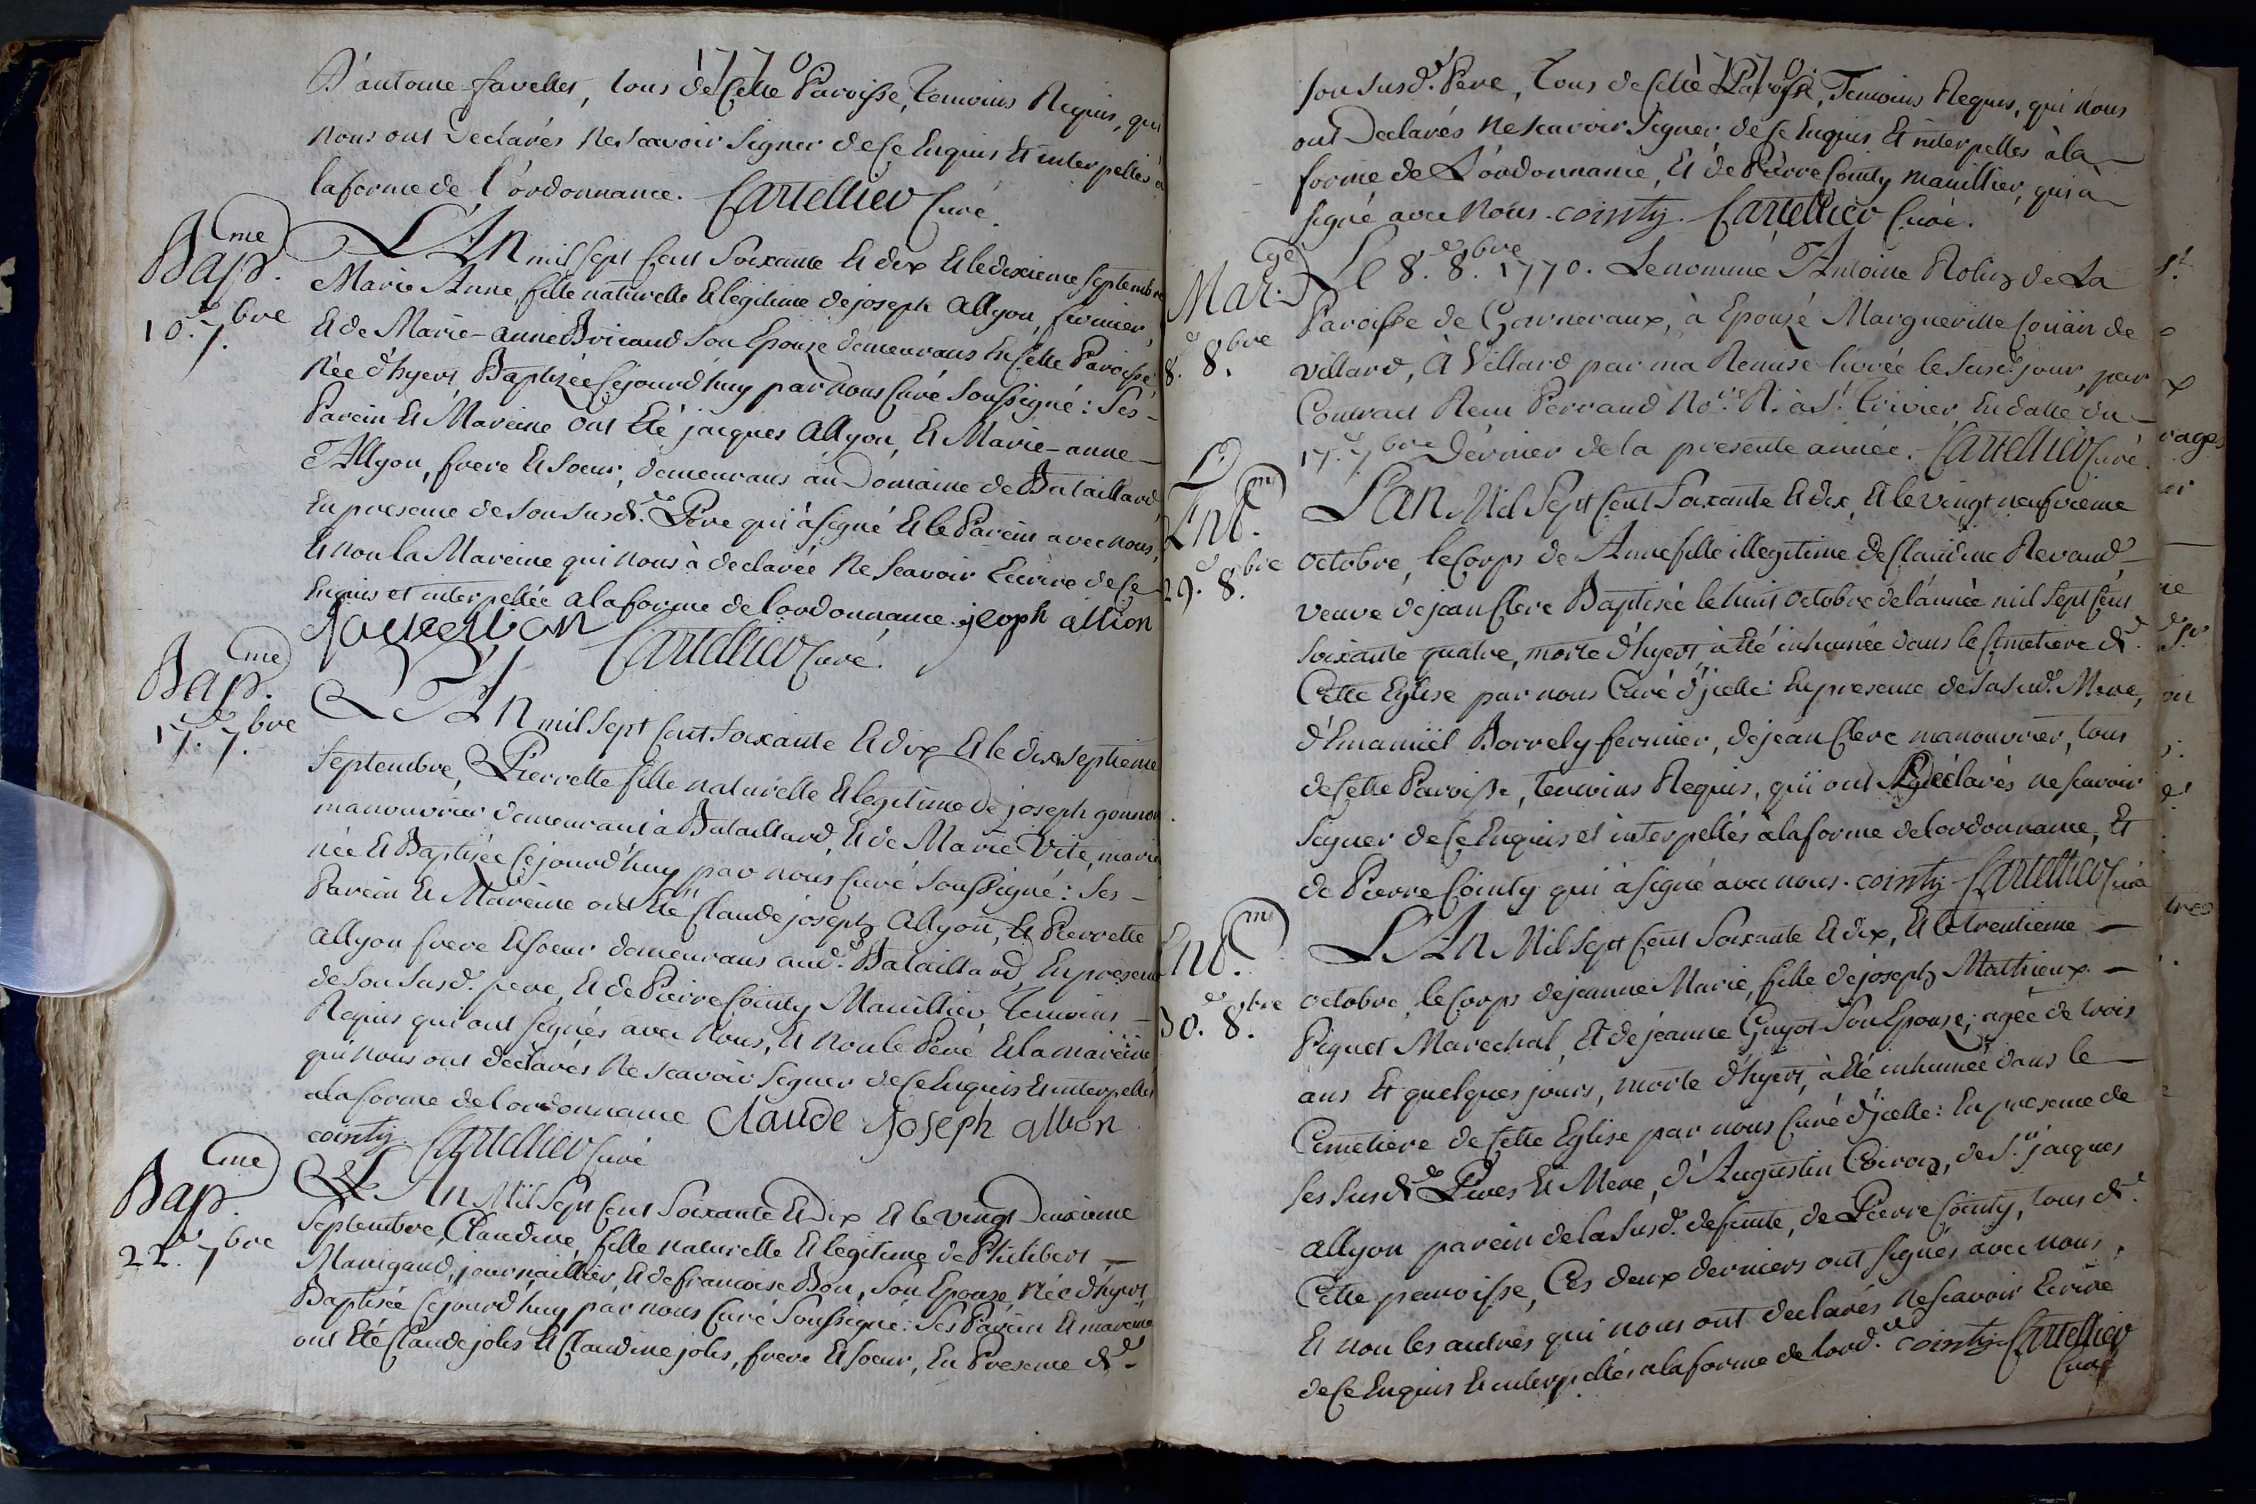 1770
D'antoine favelles, tous de Cette Paroisse, Temoins Requis, qui
nous ont Declarés ne Scavoir Signer de Ce Enquis Et interpellés a
la forme de l'ordonnance. Cartellier Curé.
Bap.me
10.e 7.bre
L'An mil Sept Cent Soixante Et dix Et le dixieme Septembre
Marie Anne, fille naturelle Et legitime de joseph Allyon, fermier,
Et de Marie-anne Bricaud Son Epouse demeurans En Cette Paroisse
Née d'hyert Baptisée Cejourd'huy par nous Curé Soussigné : Ses -
Parein Et Mareine ont Eté jacques Allyon, Et Marie-anne -
Allyon, frere Et Soeur, demeurans au Domaine de Bataillard,
En presence de Son Susd.t Pere qui à Signé Et le Parein avec nous,
Et non la Mareine qui nous à declarée Ne Scavoir Ecrire de Ce
Enquis et interpellée a la forme de l'ordonnance. jeoph allion
Cartellier Curé.
Bap.me
17.e 7.bre
L'An mil Sept Cent Soixante Et dix Et le dix Septieme
Septembre, Pierrette fille naturelle Et legitime de joseph gonnon
manouvrier demeurant à Bataillard, Et de Marie Vite, marie
née Et Baptisée Cejourd'huy par nous Curé Soussigné : Ses -
Parein Et Mareine ont Eté Claude joseph Allyon, Et Pierrette
Allyon frere Et Soeur demeurans aud.t Bataillard, En presence
de Son Susd.t pere, Et de Pierre Cointy Manillier Temoins -
Requis qui ont Signés avec Nous, Et non le Pere Et la mareine
qui nous ont declarés Ne Scavoir Signer de Ce Enquis Et interpellés
a la forme de l'ordonnance Claude Joseph allion
cointy Cartellier Curé
Bap.me
22.e 7.bre
L'An Mil Sept Cent Soixante Et Dix Et le vingt Deuxieme
Septembre, Claudine, fille naturelle Et legitime de Philibert -
Manigaud, journaillier, Et de francoise Bon, Son Epouse, Née d'hyert
Baptisée Cejourd'huy par nous Curé Soussigné : Ses Parein Et mareine
ont Eté Claude jolis Et Claudine jolis, frere Et Soeur, En Presence de
1770.
Son Susd.t Pere, Tous de Cette Paroisse, Temoins Requis, qui nous
ont Declarés Ne Scavoir Signer de Ce Enquis Et interpellés à la -
forme de L'ordonnance, Et de Pierre Cointy manillier, qui à -
Signé avec Nous. cointy. Cartellier Curé.
Mar.ge
8.e 8.bre
Le 8.e 8.bre 1770. Le nommé Antoine Rolin de La
Paroisse de Garneraux, à Epousé Marguerite Coüin de
Villard, À Villard par ma Remise livrée le Susd.t jour, par
Contract Recu Perraud No.re R. à S.t Trivier En datte du -
17.e 7.bre Dernier de la presente année. Cartellier Curé.
Ent.m
29.e 8.bre
L'An Mil Sept Cent Soixante Et dix, Et le vingt neufvieme
octobre, le Corps de Anne fille illegitime de Claudine Revaud, -
veuve de jean Clerc Baptisée le huit octobre de l'année mil Sept Cent
Soixante quatre, morte d'hyert, à été inhumée dans le Cimetiere de
Cette Eglise par nous Curé d'jcelle: En presence de Sa Susd.e Mere,
d'Emaniiel Borrely fermier, de jean Clerc manouvrier, tous
de Cette Paroisse, temoins Requis, qui ont declarés ne scavoir
Signer de Ce Enquis et interpellés à la forme de l'ordonnance, Et
de Pierre Cointy qui à Signé avec nous. cointy Cartellier Curé
Ent.m
30.e 8.bre
L'An Mil Sept Cent Soixante Et dix, Et le trentieme -
octobre, le Corps de jeanne Marie, fille de joseph Mathieux -
Piquet Marechal, Et de jeanne Guyot Son Epouse, agée de trois
ans Et quelques jours, morte d'hyert, à été inhumée dans le -
Cimetiere de Cette Eglise par nous Curé d'jcelle : En presence de
Ses Susd.ts Peres Et Mere, d'Augustin Poiron, de S.r jacques
Allyon parein de la Susd.e defunte, de Pierre Cointy, tous de
Cette paroisse, Ces deux derniers ont Signés avec nous,
Et non les autres qui nous ont declarés Ne Scavoir Ecrire
de Ce Enquis Et interpellés a la forme de l'ord.ce cointy Cartellier
Curé